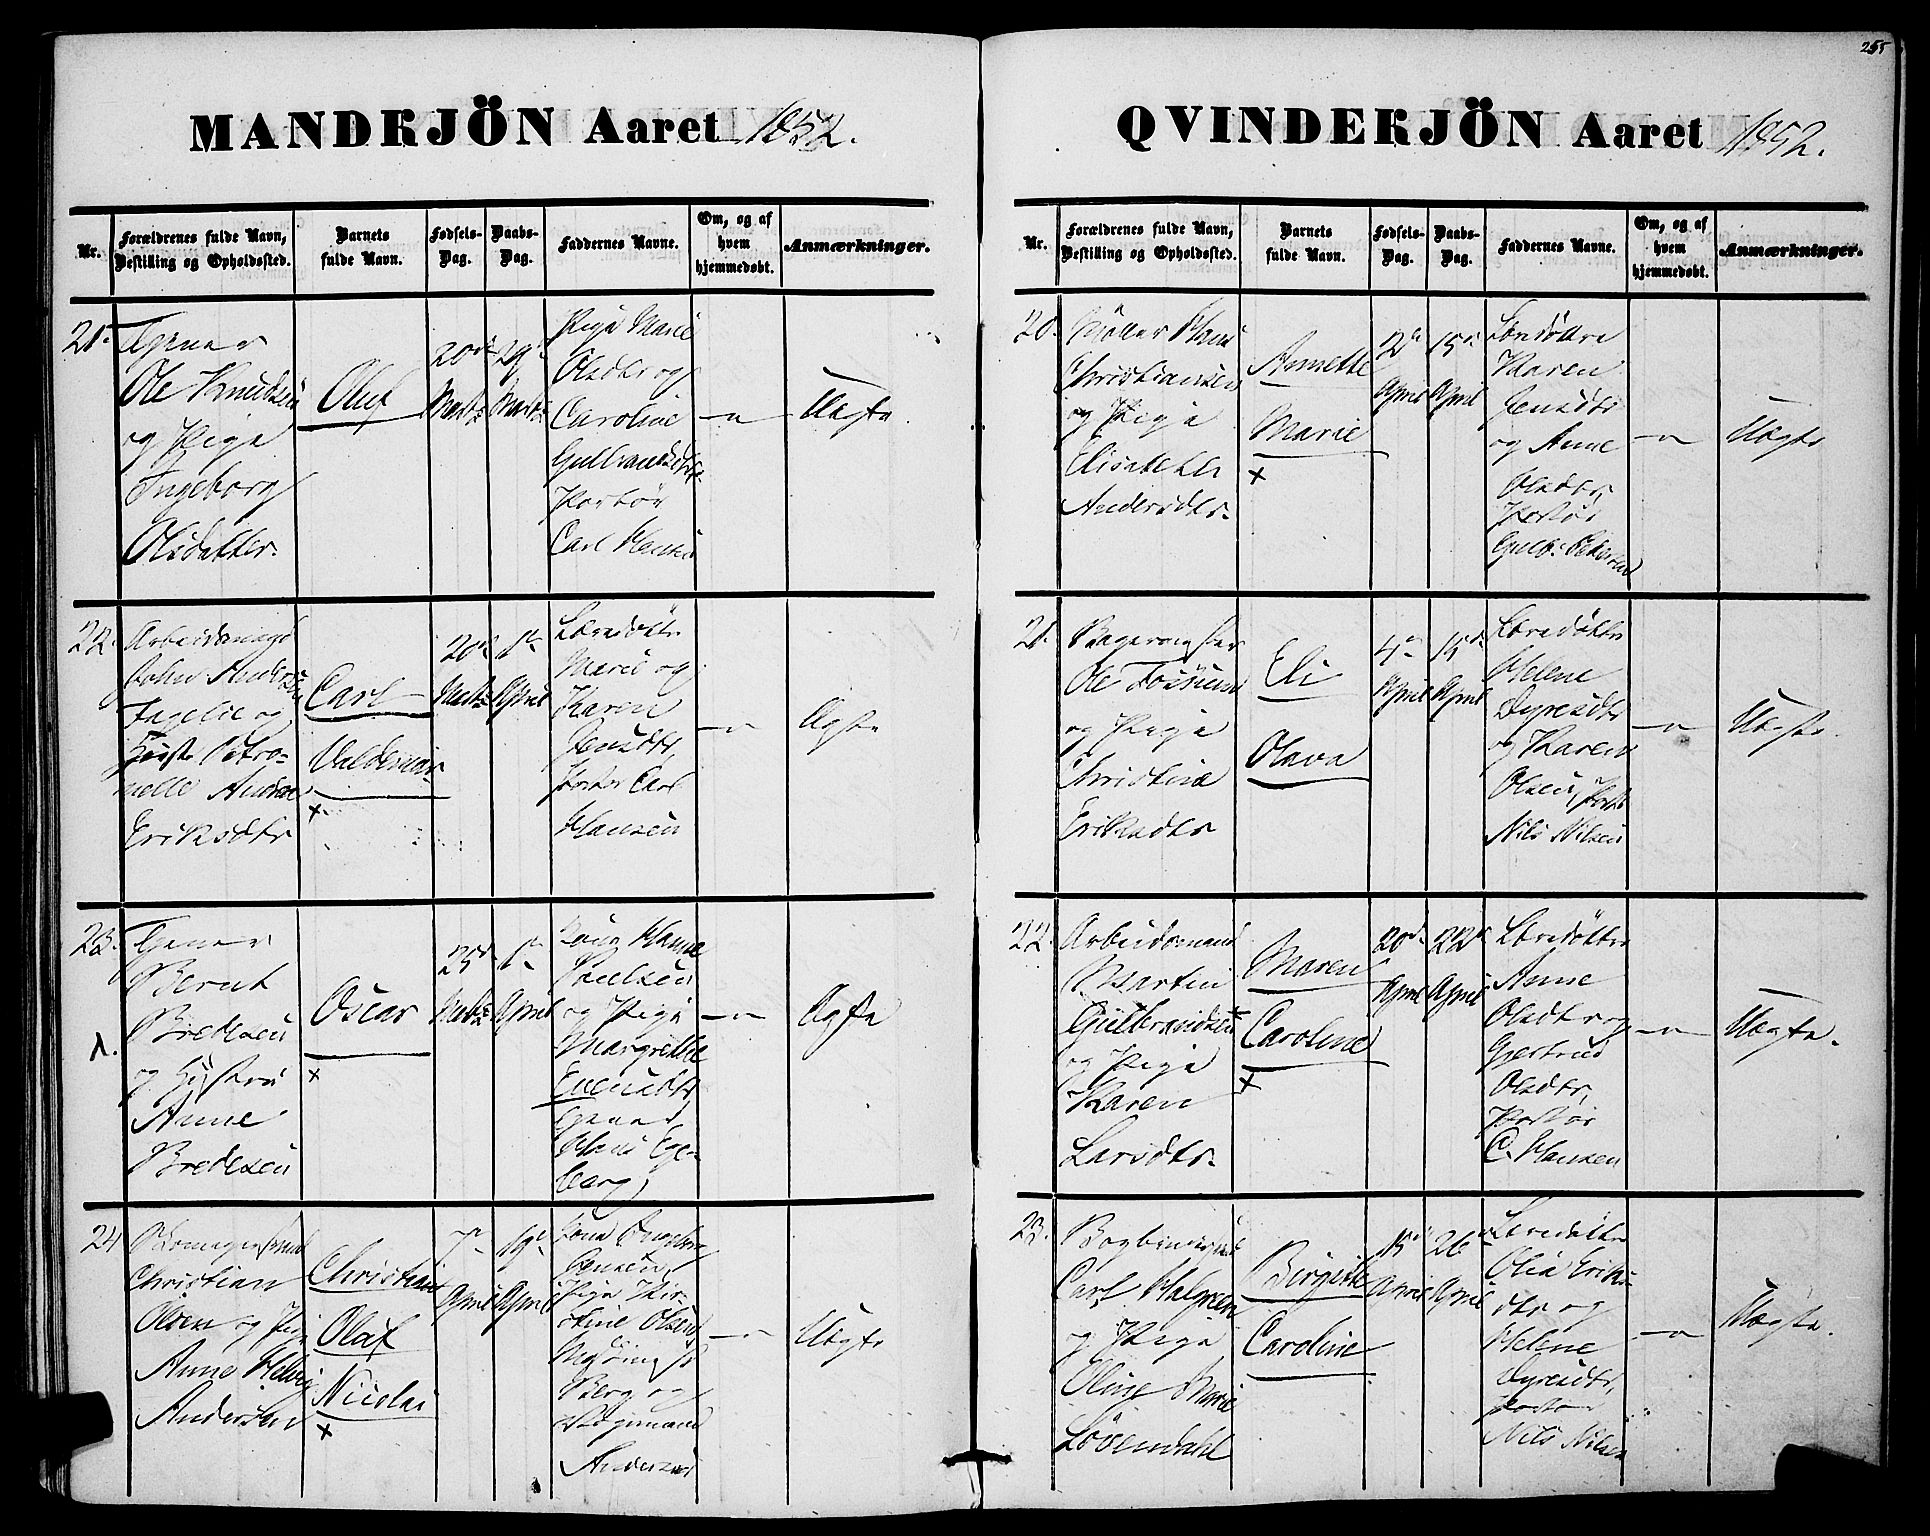 255
MANDKJÖN Aaret 1852.
Nr.
Forældrenes fulde Navn,
Bestilling og Opholdssted.
Barnets
fulde Navn.
Fødsels-
Dag.
Daabs-
Dag.
Faddernes Navne.
Om, og af
hvem
hjemmedøbt.
Anmærkninger.
21.
Tjener
Ole Knudsen
og Pige
Ingeborg
Olsdatter.
Oluf
20de
Marts
29de
Marts
Pige Marie
Olsdtr og
Caroline
Gulbransdtr
Portør
Carl Hansen
Uægte
22.
Arbeidsmand
John Andersen
og
Petro-
nelle
Eriksdtr
Carl
Valdemar
×
20de
Marts
1ste
April
Løvedøttre
Marie og
Karen
Jensdtr,
Portør Carl
Hansen
Ægte
23.
Tjener
Bernt
Bredesen
og Hustru
Anne
Bredesen
Oscar
×
25de
Marts
1ste
April
Kone Hanne
Poulsen
og Pige
Margrethe
Evensdtr
Tjener
Hans Ege-
berg
Ægte
24
Christian
Olsen og Pige
Anne Helvig
Andersen
Christian
Olaf
Nicolai
×
7de
April
19de
April
Kone Ingeborg
Jensen,
Pige Kir-
stine Olsen,
Berg og
Andersen
Uægte
QVINDEKJÖN Aaret 1852.
Nr.
Forældrenes fulde Navn,
Bestilling og Opholdssted.
Barnets
fulde Navn.
Fødsels-
Dag.
Daabs-
Dag.
Faddernes Navne.
Om, og af
hvem
hjemmedøbt.
Anmærkninger.
20.
Møller Hans
Christiansen
og Pige
Elisabeth
Andersdtr.
Annette
Marie
×
2de
April
15de
April
Løvedøttre
Karen
Jensdtr
og Anne
Olsdtr,
Portør
Gulb. Pedersen
Uægte
21.
Bagermester
Ole Fossum
og Pige
Christine
Eriksdtr
Eli
Olava
4de
April
15de
April
Løvedøttre
Helene
Dyresdtr
og Karen
Olsen, Portør
Nils Nilsen
Uægte.
22.
Arbeidsmand
Martin
Gulbrandsen
og Pige
Karen
Larsdtr.
Maren
Caroline
×
20de
April
22de
April
Løvedøttre
Anne
Olsdtr og
Gjertrud
Olsdtr,
Portør
C. Hansen
Uægte.
23.
Bogbindersvend
Carl Halgreen
og Pige
Oline Marie
Lövendahl
Birgitte
Caroline
15de
April
26
April
Løvedøttre
Olea Eriks-
dtr og
Helene
Dyresdtr,
Portør
Nils Nilsen
Uægte.